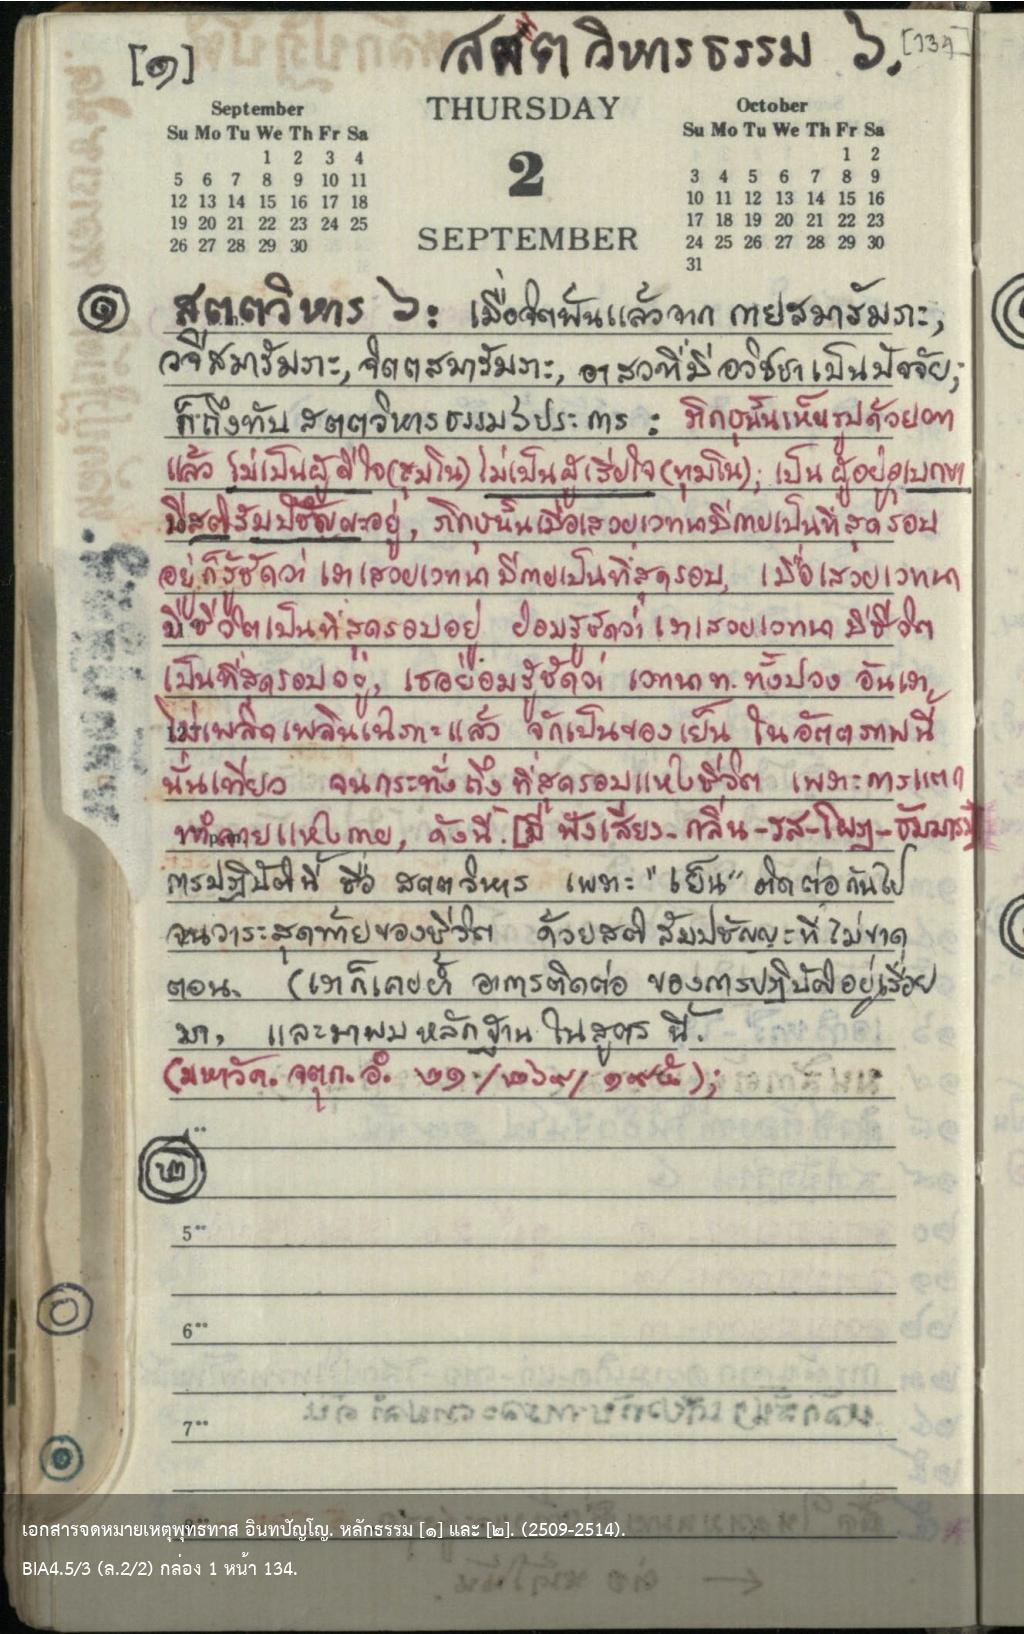 [๑]
สตตวิหารธรรม ๖. [134]
September
Su Mo Tu We Th Fr Sa
1 2 3 4
5 6 7 8 9 10 11
12 13 14 15 16 17 18
19 20 21 22 23 24 25
26 27 28 29 30
THURSDAY
2
SEPTEMBER
October
Su Mo Tu We Th Fr Sa
1 2
3 4 5 6 7 8 9
10 11 12 13 14 15 16
17 18 19 20 21 22 23
24 25 26 27 28 29 30
31
๑ สตตวิหาร ๖: เมื่อจิตพ้นแล้วจาก กายสมารัมภะ,
วจีสมารัมภะ, จิตตสมารัมภะ, อาสวที่มีอวิชชาเป็นปัจจัย;
ก็ถึงทับ สตตวิหารธรรม ๖ ประการ : ภิกษุนั้นเห็นรูปด้วยตา
แล้ว ไม่เป็นผู้ดีใจ (สุมโน) ไม่เป็นผู้เสียใจ (ทุมโน); เป็นผู้อยู่อุเบกขา
มีสติสัมปชัญญะอยู่, ภิกษุนั้นเมื่อเสวยเวทนามีกายเป็นที่สุดรอบ
อยู่ก็รู้ชัดว่า เราเสวยเวทนามีกายเป็นที่สุดรอบ, เมื่อเสวยเวทนา
มีชีวิตเป็นที่สุดรอบอยู่ ย่อมรู้ชัดว่า เราเสวยเวทนา มีชีวิต
เป็นที่สุดรอบอยู่, เธอย่อมรู้ชัดว่า เวทนา ท. ทั้งปวง อันเรา
ไม่เพลิดเพลินเฉพาะแล้ว จักเป็นของเย็น ในอัตตภาพนี้
นั่นเทียว จนกระทั่งถึง ที่สุดรอบแห่งชีวิต เพราะการแตก
ทำลายแห่งกาย, ดังนี้. [มี ฟังเสียง-กลิ่น-รส-โผฏ-ธัมมารมณ์]
การปฏิบัตินี้ ชื่อ สตตวิหาร เพราะ "เย็น" ติดต่อกันไป
จนวาระสุดท้ายของชีวิต ด้วยสติสัมปชัญญะที่ไม่ขาด
ตอน. (เราก็เคยย้ำ อาการติดต่อ ของการปฏิบัติอยู่เรื่อย
มา, และมาพบหลักฐาน ในสูตร นี้.
(มหาวัค. จตุก. อํ. ๒๑/๒๖๙/๑๙๕);
๒
5⁰⁰
6⁰⁰
7⁰⁰
เอกสารจดหมายเหตุพุทธทาส อินทปัญโญ. หลักธรรม [๑] และ [๒]. (2509-2514).
BIA4.5/3 (ล.2/2) กล่อง 1 หน้า 134.